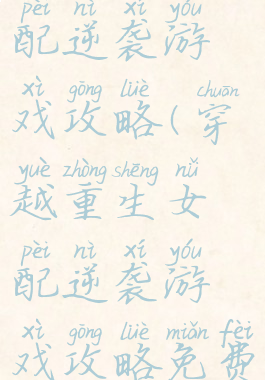 pèi nì xí yóu
配逆袭游
xì gōng lüè chuān
戏攻略(穿
yuè zhòng shēng nǚ
越重生女
pèi nì xí yóu
配逆袭游
xì gōng lüè miǎn fèi
戏攻略免费